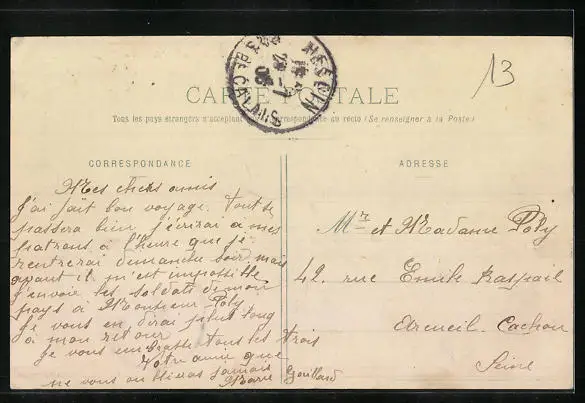 13
HESDIN
24 -7
05
PAS DE CALAIS
CARTE POSTALE
Tous les pays étrangers n'acceptent pas la correspondance au recto (Se renseigner à la Poste)
CORRESPONDANCE
Mes chers amis
J'ai fait bon voyage. Tout se
passera bien j'écrirai à mes
patrons à l'heure que je
rentrerai dimanche soir mais
avant il m'est impossible
J'envoie les soldats de mon
pays à Monsieur Poly
Je vous en dirai plus long
à mon retour
Je vous embrasse tous les trois
Votre amie que
ne vous oubliera jamais
Marie Gouillard
ADRESSE
Mr et Madame Poly
42. rue Emile Raspail
Arcueil. Cachan
Seine